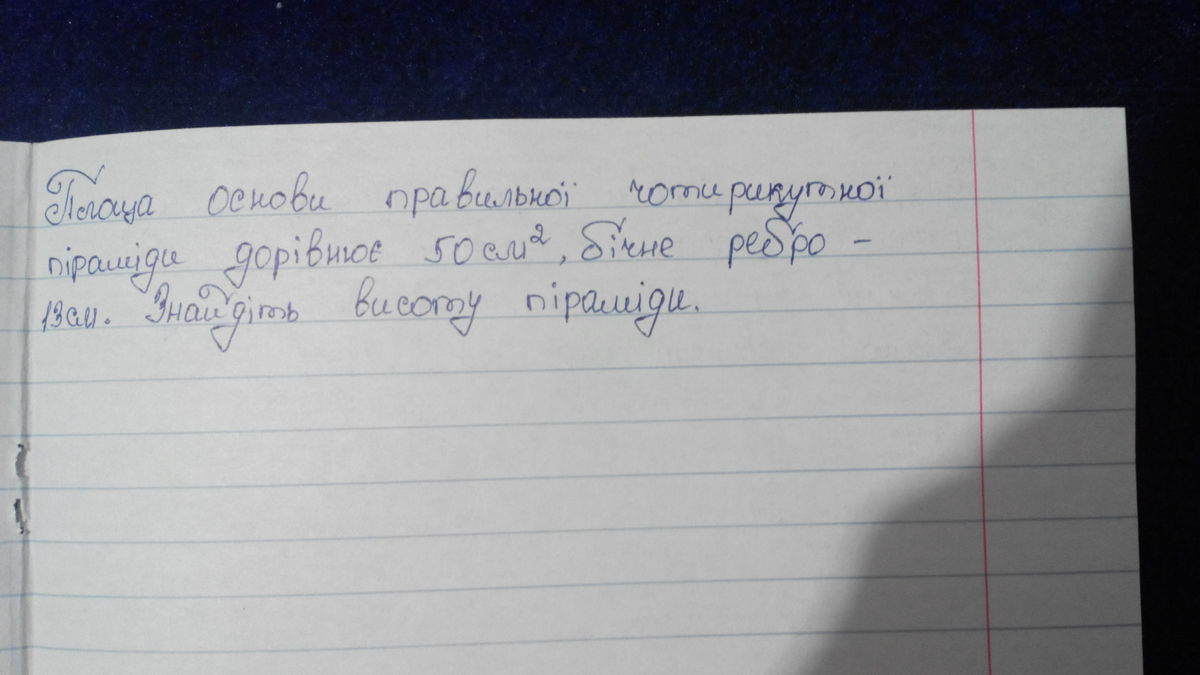 Площа основи правильної чотирикутної
піраміди дорівнює 50 см², бічне ребро –
13 см. Знайдіть висоту піраміди.